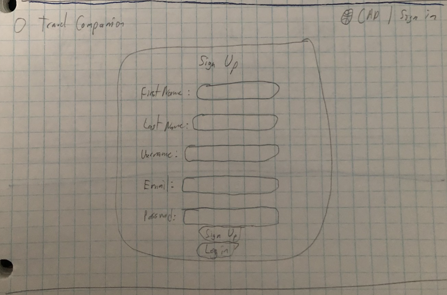 Travel Companion
CAD | Sign in
Sign Up
First Name:
Last Name:
Username:
Email:
Password:
Sign Up
Log in